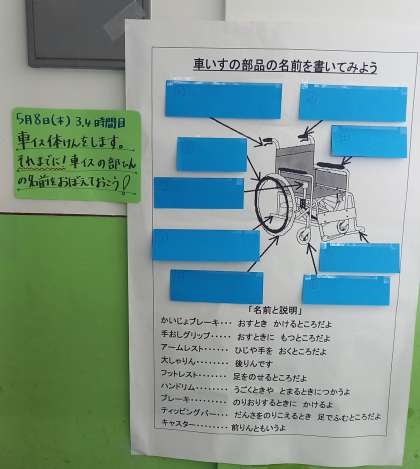 車いすの部品の名前を書いてみよう
5月8日(木) 3,4時間目
車イス体けんをします。
それまでに!車イスの部ひん
の名前をおぼえておこう!
「名前と説明」
かいじょブレーキ・・・ おすとき かけるところだよ
手おしグリップ・・・・・ おすときに もつところだよ
アームレスト・・・・・・・ ひじや手を おくところだよ
大しゃりん・・・・・・・・ 後りんです
フットレスト・・・・・・・ 足をのせるところだよ
ハンドリム・・・・・・・・ うごくときや とまるときにつかうよ
ブレーキ・・・・・・・・・ のりおりするときに かけるよ
ティッピングバー・・・・ だんさをのりこえるとき 足でふむところだよ
キャスター・・・・・・・・ 前りんともいうよ